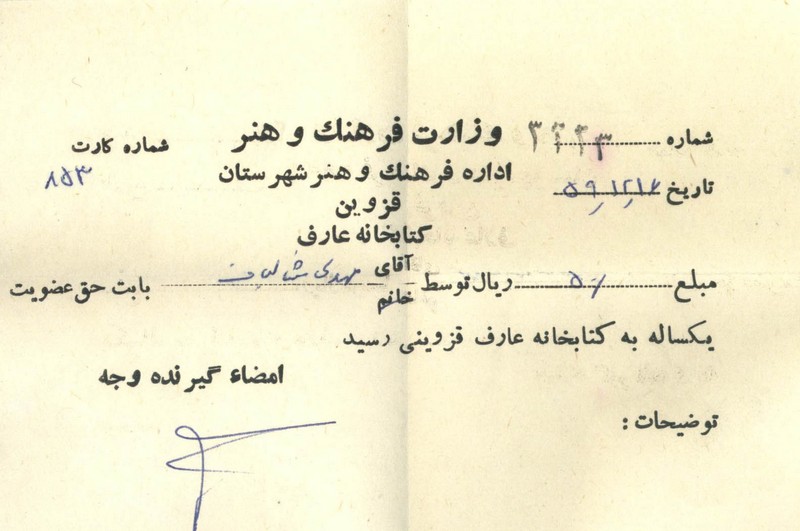 شماره ۳۲۴۳ وزارت فرهنك و هنر شماره کارت
تاریخ ۵۹,۱۲,۱۷ اداره فرهنك و هنر شهرستان ۸۵۳
قزوین
کتابخانه عارف
مبلغ ۵۰/ ریال توسط آقای خانم مهدی بابت حق عضویت
یکساله به کتابخانه عارف قزوینی رسید
امضاء گیرنده وجه
توضیحات :